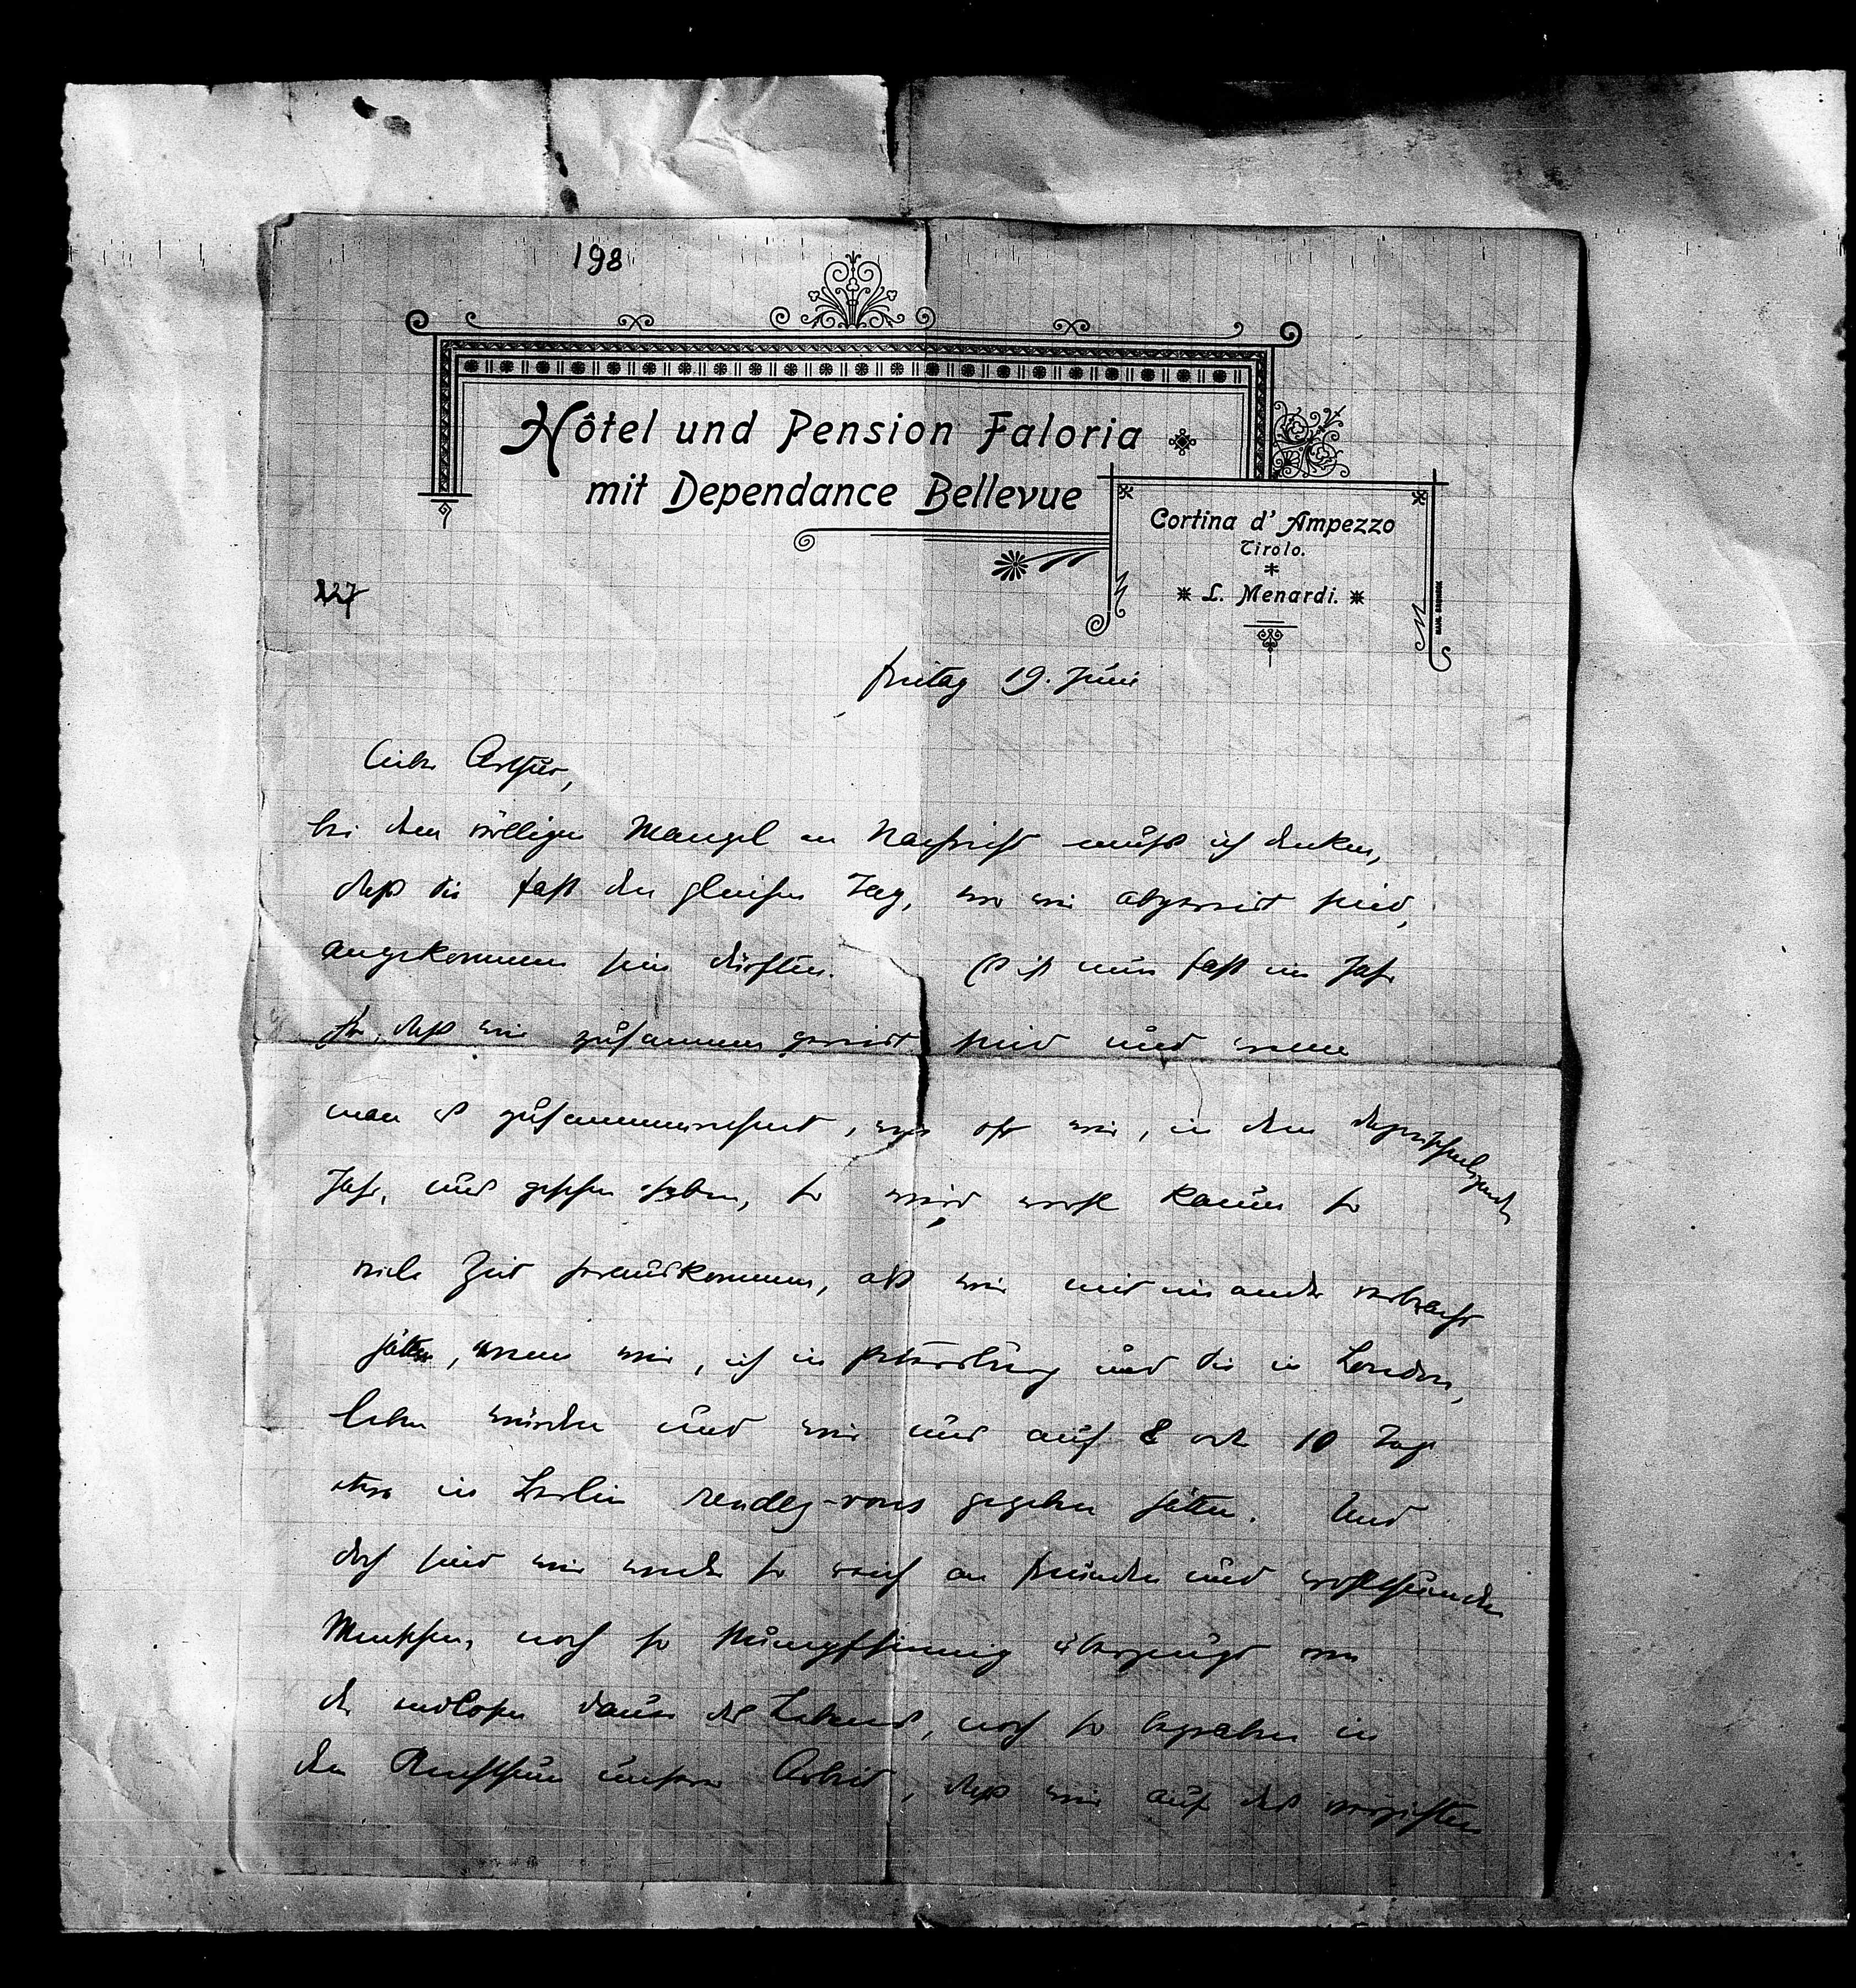 198
Hôtel und Pension Faloria
mit Dependance Bellevue
Cortina d'Ampezzo
Tirolo.
L. Menardi.
227
Freitag 19. Juni
Lieber Arthur,
bei dem völligen Mangel an Nachricht muß ich denken,
daß Sie fast den gleichen Tag, wo wir abgereist sind,
angekommen sein dürften. Es ist nun fast ein Jahr
her, daß wir zusammen gereist sind und wenn
man es zusammenrechnet, wie oft wir, in dem dazwischenliegenden
Jahr, uns gesehen haben, so wird wohl kaum so
viele Zeit herauskommen, als wir mit einander verbracht
hätten, wenn wir, ich in Petersburg und Sie in London,
leben würden und wir uns auf 8 oder 10 Tage
etwa in Berlin rendez-vous gegeben hätten. Und
doch sind wir weder so reich an Freunden und wohlthuenden
Menschen, noch so stumpfsinnig überzeugt von
der endlosen Dauer des Lebens, noch so begraben in
den Reichthum unserer Arbeit, daß wir auf das verzichten